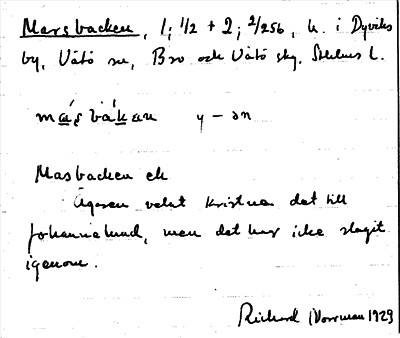 Marsbacken, 1; 1/2 + 2; 2/256, h. i Dyviks
by, Vätö sn, Bro och Vätö skg. Sthlms l.
más̱bàk̲an y – ən
Masbacken ek
Ägaren velat kristna det till
Johanneslund, men det har icke slagit
igenom.
Richard Norrman 1929